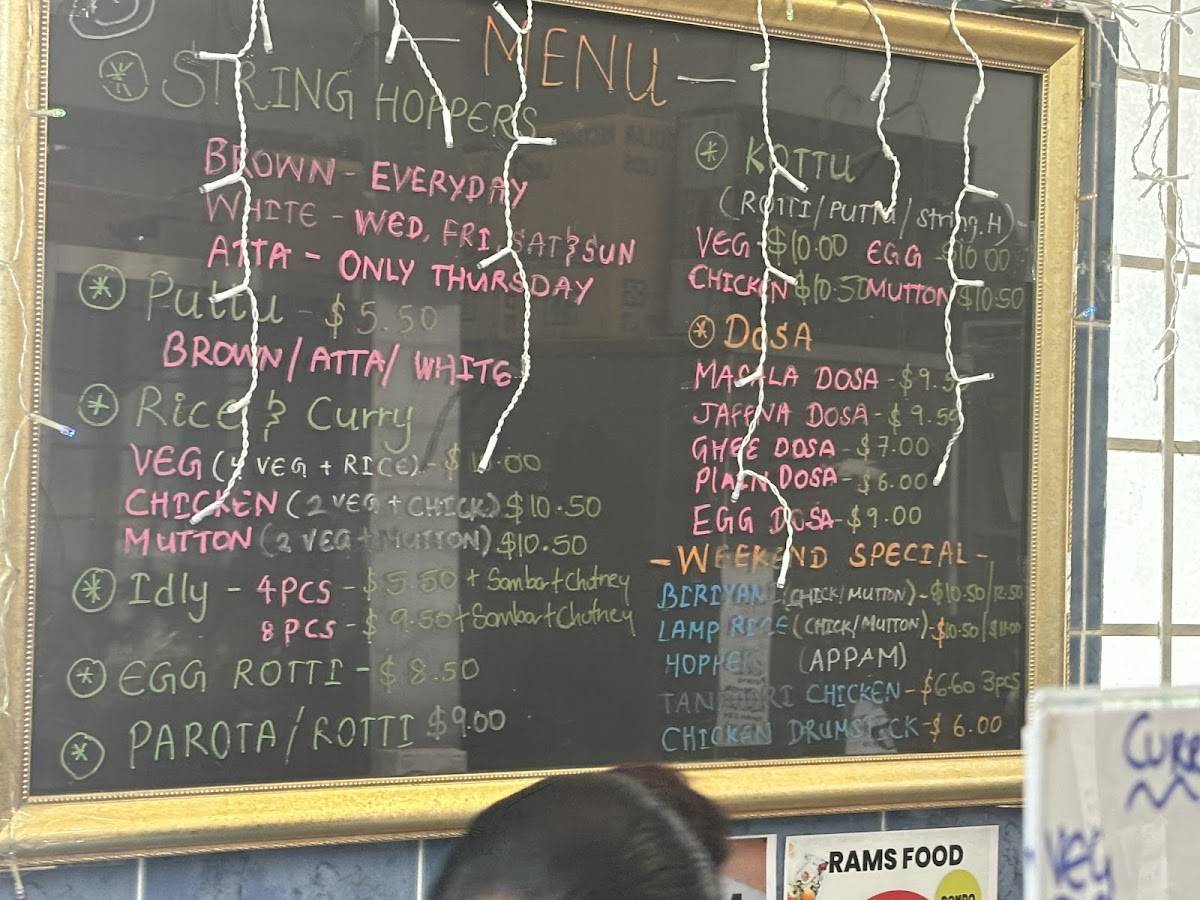 MENU
STRING HOPPERS
BROWN - EVERYDAY
WHITE - WED, FRI, SAT & SUN
ATTA - ONLY THURSDAY
Puttu - $5.50
BROWN/ATTA/WHITE
Rice & Curry
VEG (4 VEG + RICE) -
CHICKEN (2 VEG + CHICK) $10.50
MUTTON (2 VEG + MUTTON) $10.50
Idly - 4PCS - $5.50 + Sambar + Chutney
8 PCS - $9.50 + Sambar + Chutney
EGG ROTTI - $8.50
PAROTA/ROTTI $9.00
KOTTU
(ROTTI/PUTTU/String.H) -
VEG - $10.00 EGG - $10.00
CHICKEN $10.50 MUTTON $10.50
DOSA
MASALA DOSA - $9.5
JAFFNA DOSA - $9.50
GHEE DOSA - $7.00
PLAIN DOSA - $6.00
EGG DOSA - $9.00
- WEEKEND SPECIAL -
BIRIYANI (CHICK/MUTTON) - $10.50/12.50
LAMP RICE (CHICK/MUTTON) - $10.50/$11.00
HOPPERS (APPAM)
TANDOORI CHICKEN - $6.60 3pcs
CHICKEN DRUMSTICK - $6.00
RAMS FOOD
Veg